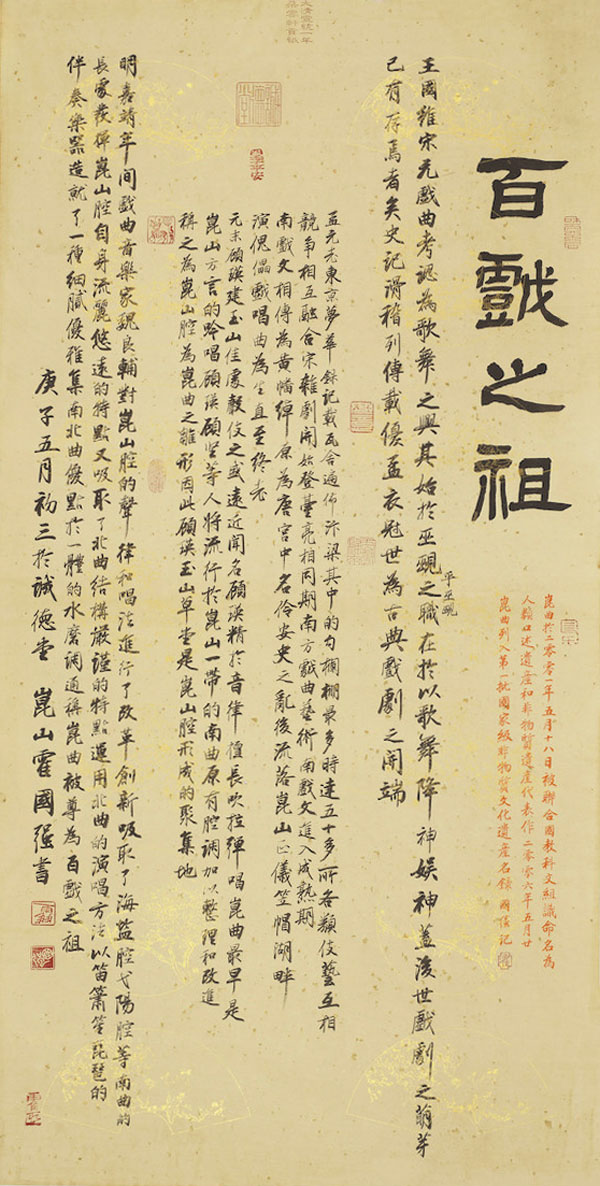 百戲之祖
崑曲於二零零一年五月十八日被聯合國教科文組識命名為
人類口述遺產和非物質遺產代表作二零零六年五月廿
崑曲列入第一批國家級非物質文化遺產名錄 國强記
王國維宋元戲曲考認為歌舞之興其始於巫覡之職在於以歌舞降神娱神蓋後世戲劇之萌芽
平巫覡
已有存焉者矣史記滑稽列傳載優孟衣冠世為古典戲劇之開端
孟元老東京夢華錄記載瓦舍遍佈汴梁其中的勾欄棚最多時達五十多所各類伎藝互相
競争相互融合宋雜劇開始登臺亮相同期南方戲曲藝術南戲文進入成熟期
南戲文相傳為黄幡綽原為唐宫中名伶安史之亂後流落崑山正儀笠帽湖畔
演傀儡戲唱曲為生直至終老
元末顧瑛建玉山佳處聲伎之盛遠近聞名顧瑛精於音律值長吹拉彈唱崑曲最早是
崑山方言的吟唱顧瑛顧堅等人將流行於崑山一帶的南曲原有腔調加以整理和改進
稱之為崑山腔為崑曲之雛形因此顧瑛玉山草堂是崑山腔形成的聚集地
明嘉靖年间戲曲音樂家魏良輔對崑山腔的聲律和唱法進行了改革創新吸取了海盐腔弋陽腔等南曲的
長處發揮崑山腔自身流麗悠遠的特點又吸取了北曲结構嚴謹的特點運用北曲的演唱方法以笛簫笙琵琶的
伴奏樂器造就了一種细膩優雅集南北曲優點於一體的水磨調通稱崑曲被尊為百戲之祖
庚子五月初三於誠德堂 崑山霍國强書